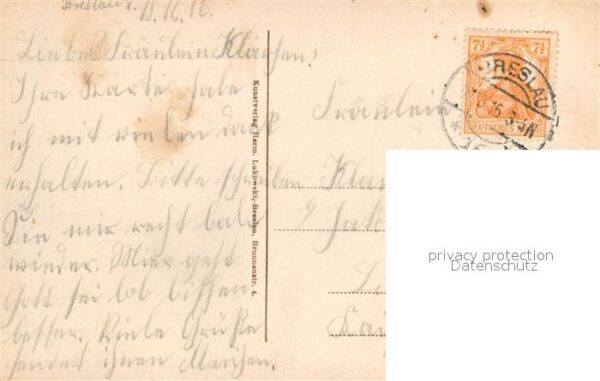 Breslau d. 15.10.16.
Liebes Fräulein Klärchen!
Ihre Karte habe
ich mit vielen dank
erhalten. Bitte schreiben
Sie mir recht bald
wieder. Mier geht
Gott sei lob bissen
besser. Viele Grüße
sendet ihnen
Kunstverlag Herm. Lukowski, Breslau, Brunnenstr. 4.
7½ 7½
BRESLAU
DEUTSCHES
Fräulein
privacy protection
Datenschutz